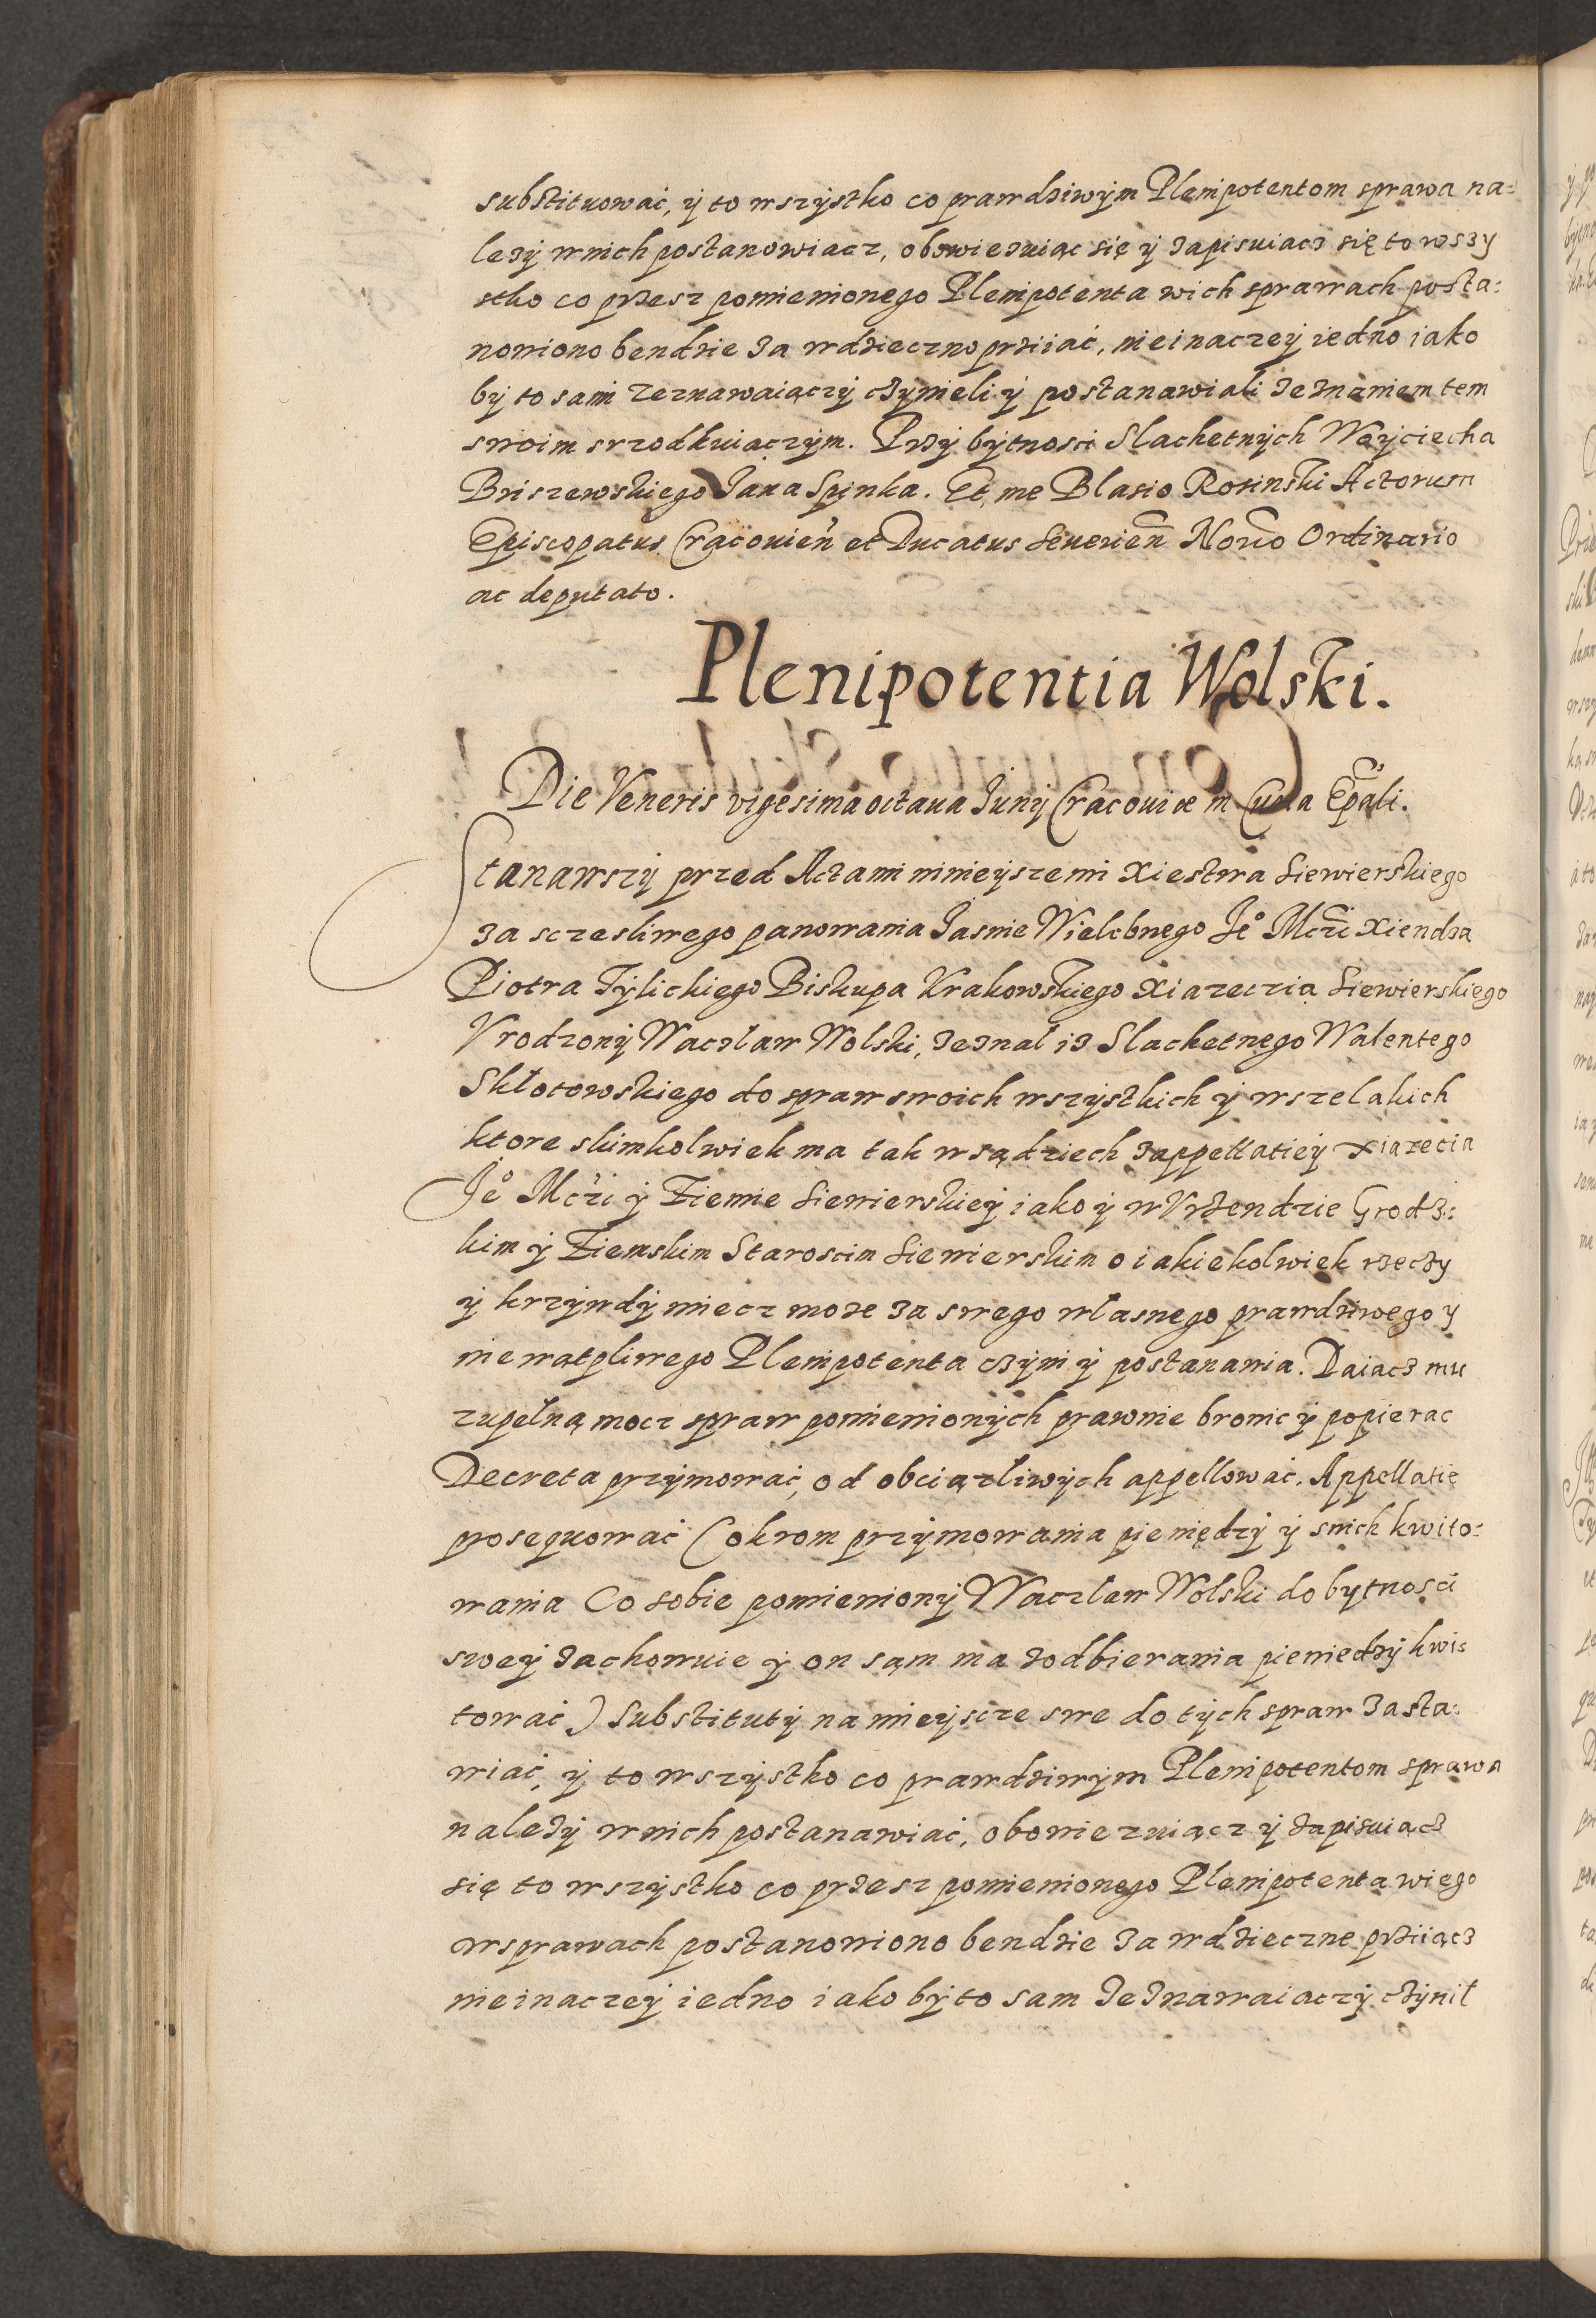 substituować, ÿ to wszÿstko co prawdziwÿm Plenipotentom sprawa na=
leżÿ wnich postanowiacz, obowiezuiąc się ÿ zapisuiacz się to wszy
stko co przesz pomienionego Plenipotenta wich sprawach posta=
nowiono bendzie za wdzieczno prziiać, nieinaczeÿ iedno iako
bÿ to sami zeznawaiączÿ czÿnieli ÿ postanawiali zeznaniem tem
swoim srzodkuiączÿm. Przÿ bÿtnosci Slachetnÿch Woÿciecha
Briszewskiego Jana Spinka. Et me Blasio Rosinski Actorum
Episcopatus Cracouień et Ducatus Seuerień Norio Ordinario
ac deputato.
Plenipotentia Wolski.
Die Veneris vigesima octaua Junÿ Cracouiæ in Curia Epali.
Stanawszÿ przed Actami ninieÿszemi Xiestwa Siewierskiego
za sczesliwego panowania Jasnie Wielebnego Je° Mczi Xiendza
Piotra Tÿlickiego Biskupa Krakowskiego Xiazeczia Siewierskiego
Vrodzonÿ Waczlaw Wolski, zeznal iz Slachetnego Walentego
Skłotowskiego do spraw swoich wszÿstkich ÿ wszelakich
ktore skimkolwiek ma tak wsądziech zappellatieÿ Xiazecia
Je° Mczi ÿ Ziemie Siewierskieÿ iako ÿ wVrzendzie Grodz=
kim ÿ Ziemskim Staroscim Siewierskim o iakiekolwiek rzeczy
ÿ krzÿwdÿ miecz moze za swego własnego prawdziwego ÿ
niewątpliwego Plenipotenta czÿni ÿ postanawia. Daiacz mu
zupełną mocz spraw pomienionÿch prawnie bronic ÿ popierac
Decreta przÿmować, od obciązliwÿch appellować, Appellatię
prosequować (okrom przÿmowania pieniędzÿ ÿ snich kwito=
wania Co sobie pomienionÿ Waczlaw Wolski do bytnosci
sweÿ zachowuie ÿ on sąm ma zodbierania pieniedzÿ kwi=
tować) Substitutÿ na mieÿscze swe do tÿch spraw zasta=
wiać, ÿ to wszÿstko co prawdziwÿm Plenipotentom sprawa
należÿ wnich postanawiać, obowiezuiącz ÿ zapisuiącz
się to wszÿstko co przesz pomienionego Plenipotenta wiego
wsprawach postanowiono bendzie za wdzieczne prziiącz
nieinaczeÿ iedno iako bÿ to sam zeznawaiaczÿ czÿnił